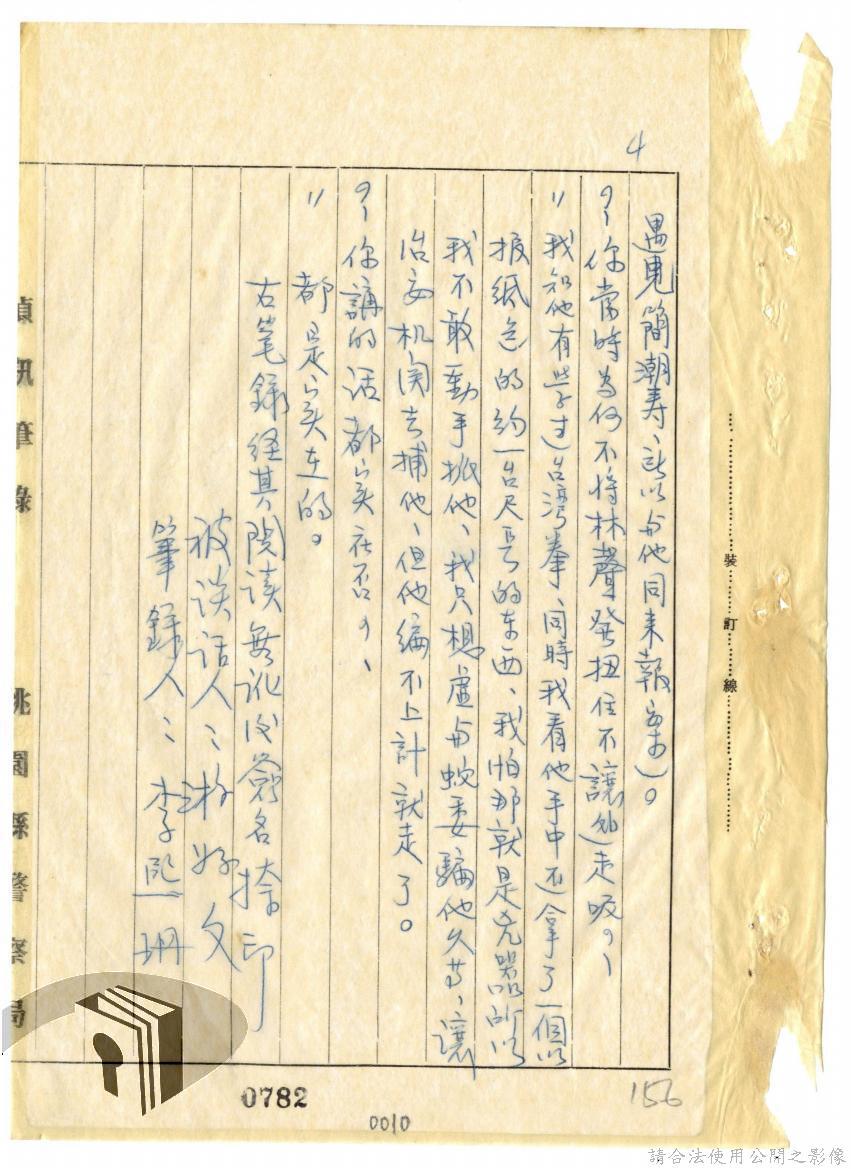 4
遇見簡潮寿、所以与他同来報案）。
?、你當時為何不將林聲發扭住不讓他走呢?、
〃我知他有学过台湾拳、同時我看他手中还拿了一個以
报纸包的約一台尺長的东西、我怕那就是凶器所以
我不敢動手抓他、我只想虛与蛇委騙他久苐、讓
治安机関去捕他、但他编不上計就走了。
?、你講的话都实在否?、
〃都是实在的。
右笔録経其閱读無讹後簽名捺印
被谈话人：游好文
筆録人：李熙珊
偵訊筆錄
桃園縣警察局
裝訂線
0782
0010
156
請合法使用公開之影像